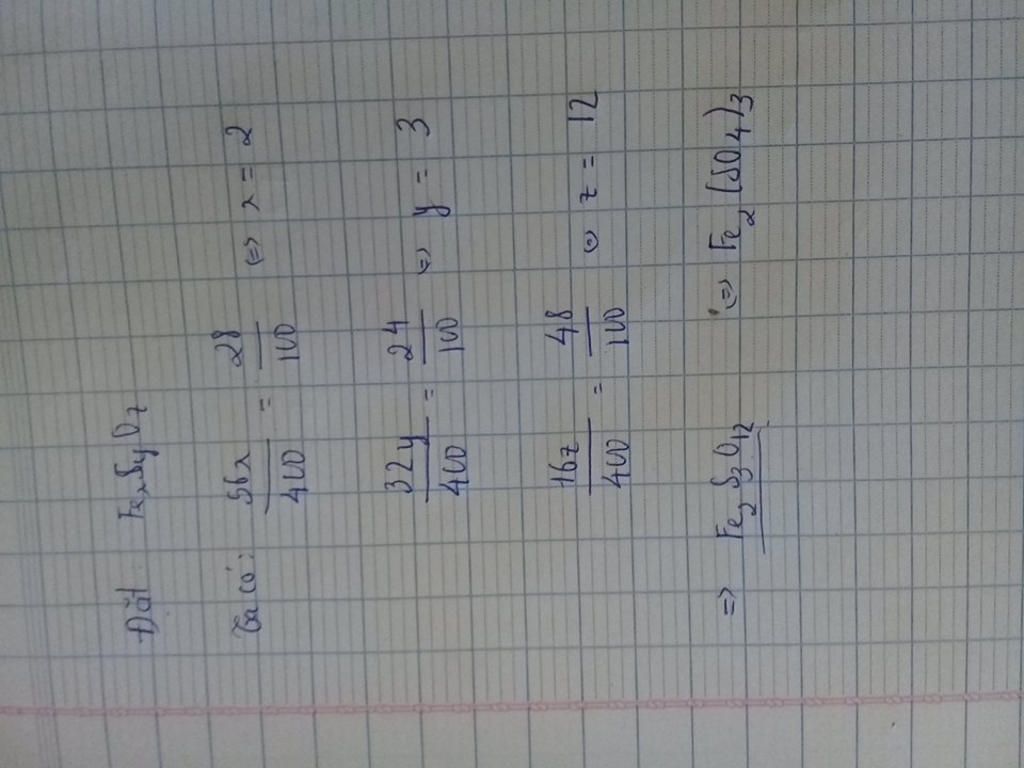 Đặt FexSyOz
Ta có: 56x/400 = 28/100 <=> x = 2
32y/400 = 24/100 <=> y = 3
16z/400 = 48/100 <=> z = 12
=> Fe2S3O12 <=> Fe2(SO4)3